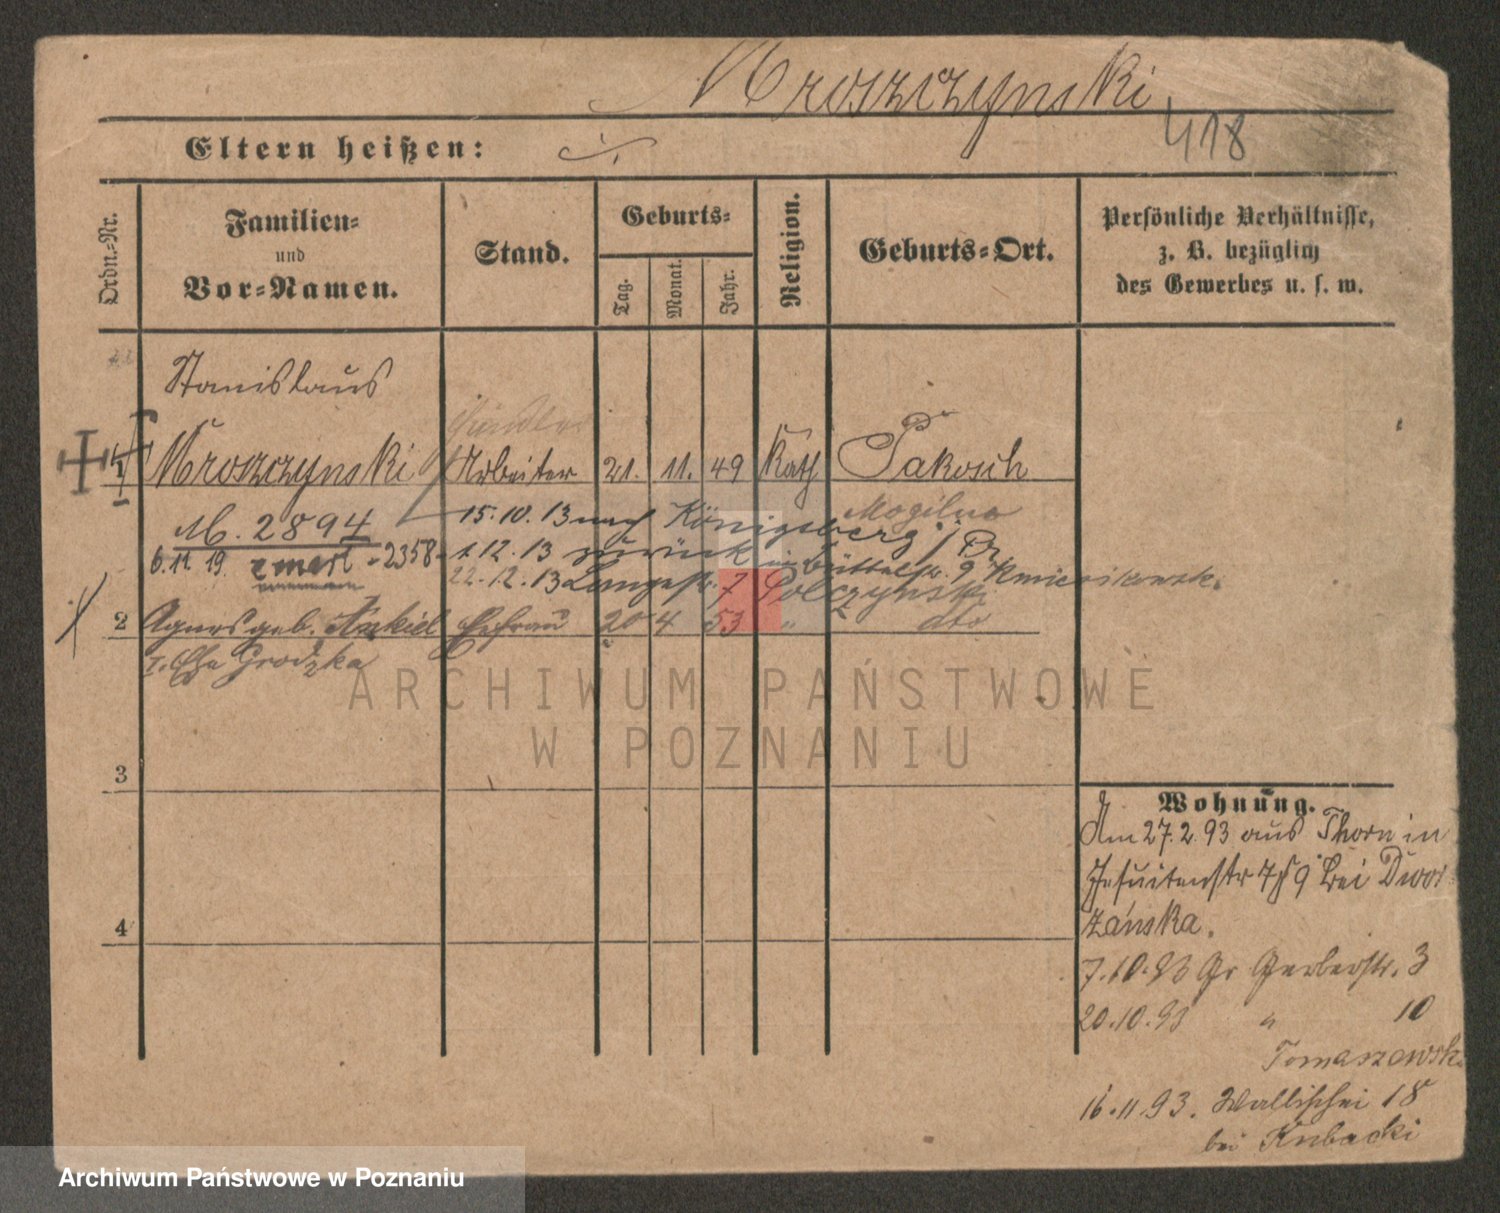 Mroszczynski
418
Eltern heißen: ./.
Ordn.-Nr.
Familien-
und
Vor-Namen.
Stand.
Geburts-
Tag.
Monat.
Jahr.
Religion.
Geburts-Ort.
Persönliche Verhältnisse,
z. B. bezüglich
des Gewerbes u. s. w.
Stanislaus
Händler
1 Mroszczynski Arbeiter 21. 11. 49 Kath Pakosch
Mogilno
M. 2894 15.10.13 nach Königsberg i/Pr
6.11.19. zmarł - 2358 - 1.12.13 zurück in Büttelstr. 9
22.12.13 Langestr. 7 Polczynski
2 Agnes geb. Ankiel Ehefrau 20 4 53 " dto
I. Ehe Grodzka
3
4
Wohnung.
Am 27.2.93 aus Thorn in
Jesuitenstr 7/9 bei Dwor
zańska.
7.10.93 Gr Gerberstr. 3
20.10.93 " 10
Tomaszewski
16.11.93. Wallischei 18
bei Kubacki
ARCHIWUM PAŃSTWOWE
W POZNANIU
Archiwum Państwowe w Poznaniu